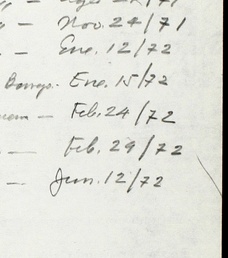 — Nov. 24/71
— Ene. 12/72
Ene. 15/72
— Feb. 24/72
— Feb. 29/72
— Jun. 12/72